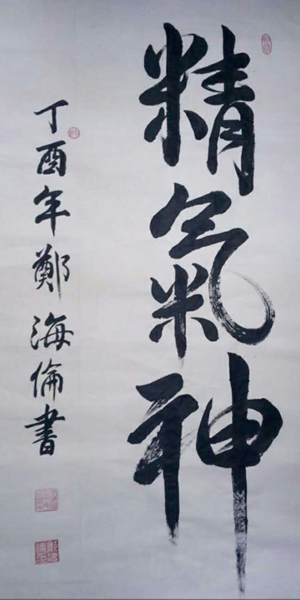 精氣神
丁酉年鄭海倫書